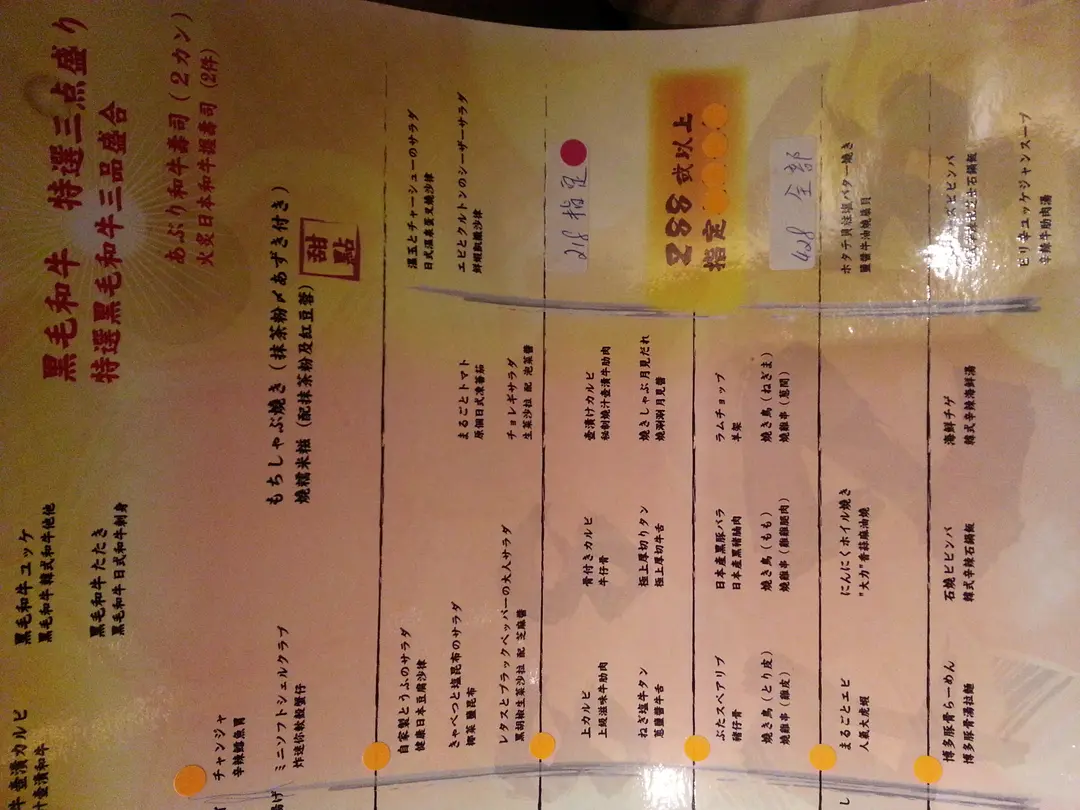 黒毛和牛 特選三点盛り
特選黑毛和牛三品盛合
あぶり和牛壽司(2カン)
火炙日本和牛握壽司 (2件)
黒毛和牛ユッケ
黑毛和牛韓式和牛他他
黒毛和牛たたき
黑毛和牛日式和牛刺身
牛壺漬カルビ
汁壺漬和牛
もちしゃぶ焼き(抹茶粉〆あずき付き)
燒糯米糍 (配抹茶粉及紅豆蓉)
甜點
チャンジャ
辛辣鱈魚胃
ミニソフトシェルクラブ
炸迷你軟殼蟹仔
温玉とチャーシューのサラダ
日式溫泉蛋叉燒沙律
エビとクルトンのシーザーサラダ
まるごとトマト
原個日式凍蕃茄
チョレギサラダ
生菜沙拉 配 泡菜醬
自家製とうふのサラダ
健康日本豆腐沙律
きゃべつと塩昆布のサラダ
椰菜 鹽昆布
レタスとブラックペッパーの大人サラダ
黑胡椒生菜沙拉 配 芝麻醬
218 指定
壺漬けカルビ
秘制燒汁壺漬牛肋肉
焼きしゃぶ月見だれ
燒涮涮月見醬
骨付きカルビ
牛仔骨
極上厚切りタン
極上厚切牛舌
上カルビ
上級滋味牛肋肉
ねぎ塩牛タン
蔥鹽醬牛舌
288 或以上
指定
ラムチョップ
羊架
焼き鳥(ねぎま)
燒雞串(蔥間)
日本産黒豚バラ
日本產黑豬腩肉
焼き鳥(もも)
燒雞串(雞腿肉)
ぶたスペアリブ
豬仔骨
焼き鳥(とり皮)
燒雞串(雞皮)
428 全部
鹽醬牛油燒扇貝
にんにくホイル焼き
"大力"香蒜麻油燒
まるごとエビ
人氣大虎蝦
辛辣牛肋肉湯
海鮮チゲ
韓式辛辣海鮮湯
石焼ビビンバ
韓式辛辣石鍋飯
博多豚骨らーめん
博多豚骨湯拉麵